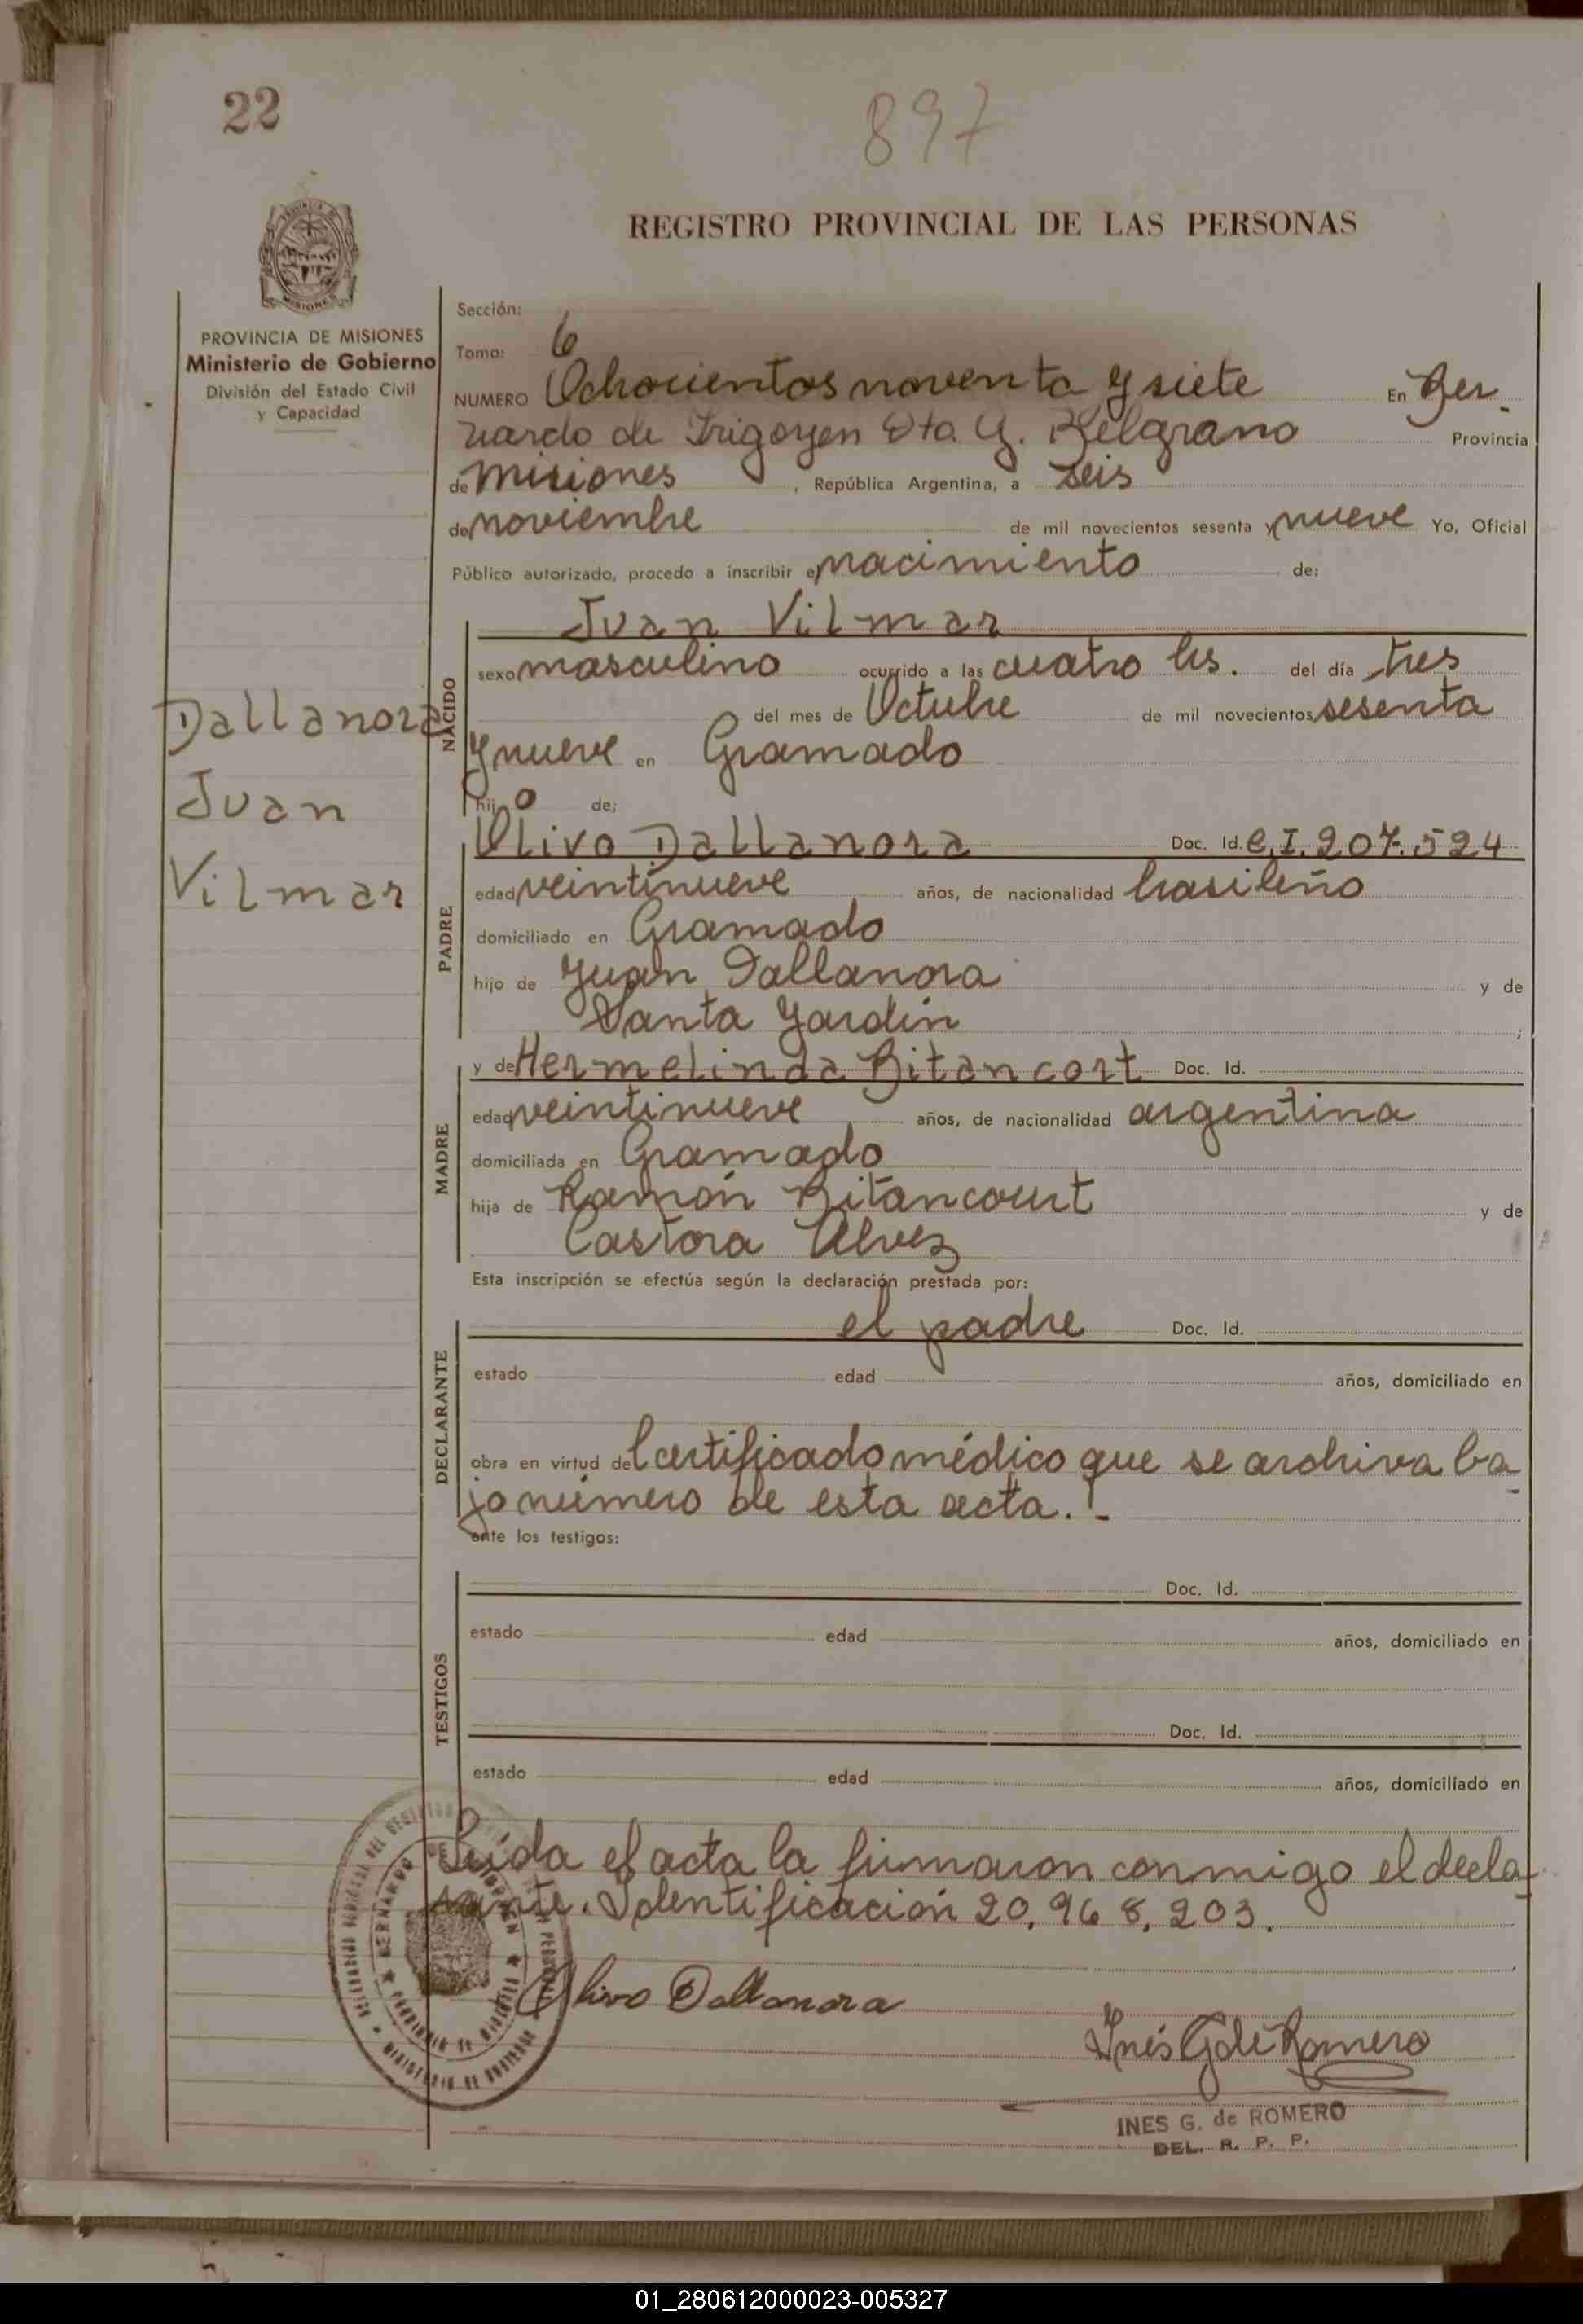 22
897
REGISTRO PROVINCIAL DE LAS PERSONAS
MISIONES
PROVINCIA DE MISIONES
Ministerio de Gobierno
División del Estado Civil
y Capacidad
Dallanora
Juan
Vilmar
Sección:
Tomo: 6
NUMERO Ochocientos noventa y siete En Ber-
nardo de Irigoyen Dto. G. Belgrano Provincia
de Misiones, República Argentina, a seis
de noviembre de mil novecientos sesenta y nueve Yo, Oficial
Público autorizado, procedo a inscribir el nacimiento de:
NACIDO
Juan Vilmar
sexo masculino ocurrido a las cuatro hs. del día tres
del mes de Octubre de mil novecientos sesenta
y nueve en Gramado
hijo de:
PADRE
Olivo Dallanora Doc. Id. C.I. 207.524
edad veintinueve años, de nacionalidad brasileño
domiciliado en Gramado
hijo de Juan Dallanora y de
Santa Jardin ;
MADRE
y de Hermelinda Bitancort Doc. Id.
edad veintinueve años, de nacionalidad argentina
domiciliada en Gramado
hija de Ramón Bitancourt y de
Castora Alvez
Esta inscripción se efectúa según la declaración prestada por:
DECLARANTE
el padre Doc. Id.
estado edad años, domiciliado en
obra en virtud de Certificado médico que se archiva ba-
jo número de esta acta.-
ante los testigos:
TESTIGOS
Doc. Id.
estado edad años, domiciliado en
Doc. Id.
estado edad años, domiciliado en
Leída el acta la firmaron conmigo el decla-
rante. Identificación 20.968.203.
Olivo Dallanora
Inés G de Romero
INES G. de ROMERO
DEL. R. P. P.
01_280612000023-005327